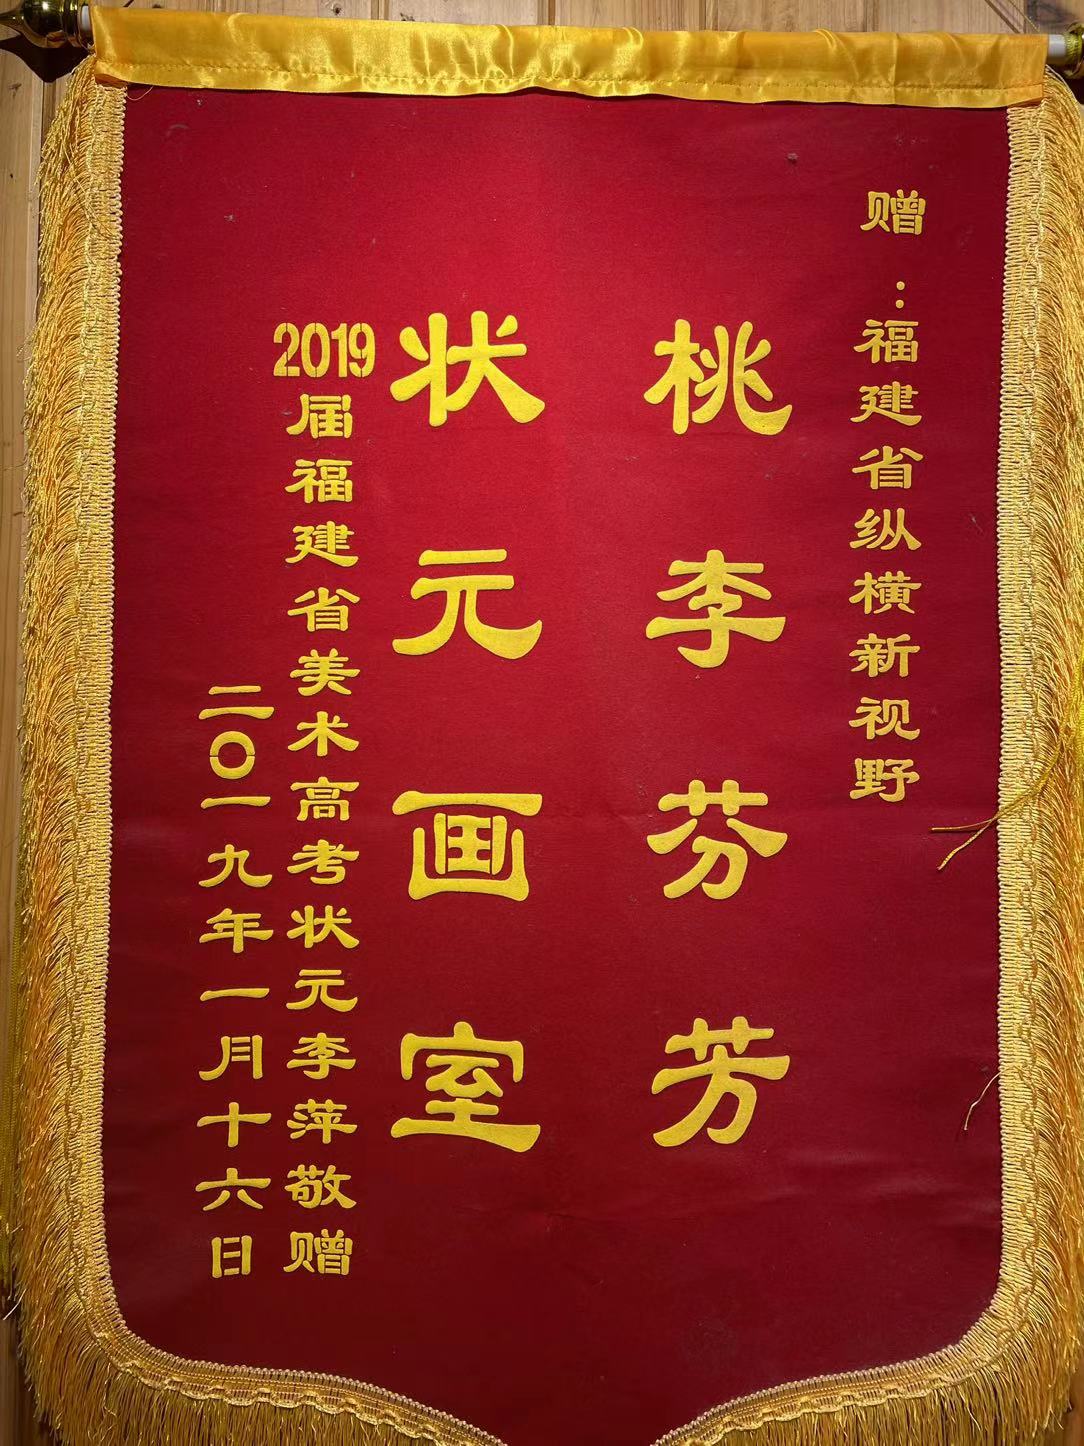 赠：福建省纵横新视野
桃李芬芳
状元画室
2019届福建省美术高考状元李萍敬赠
二〇一九年一月十六日